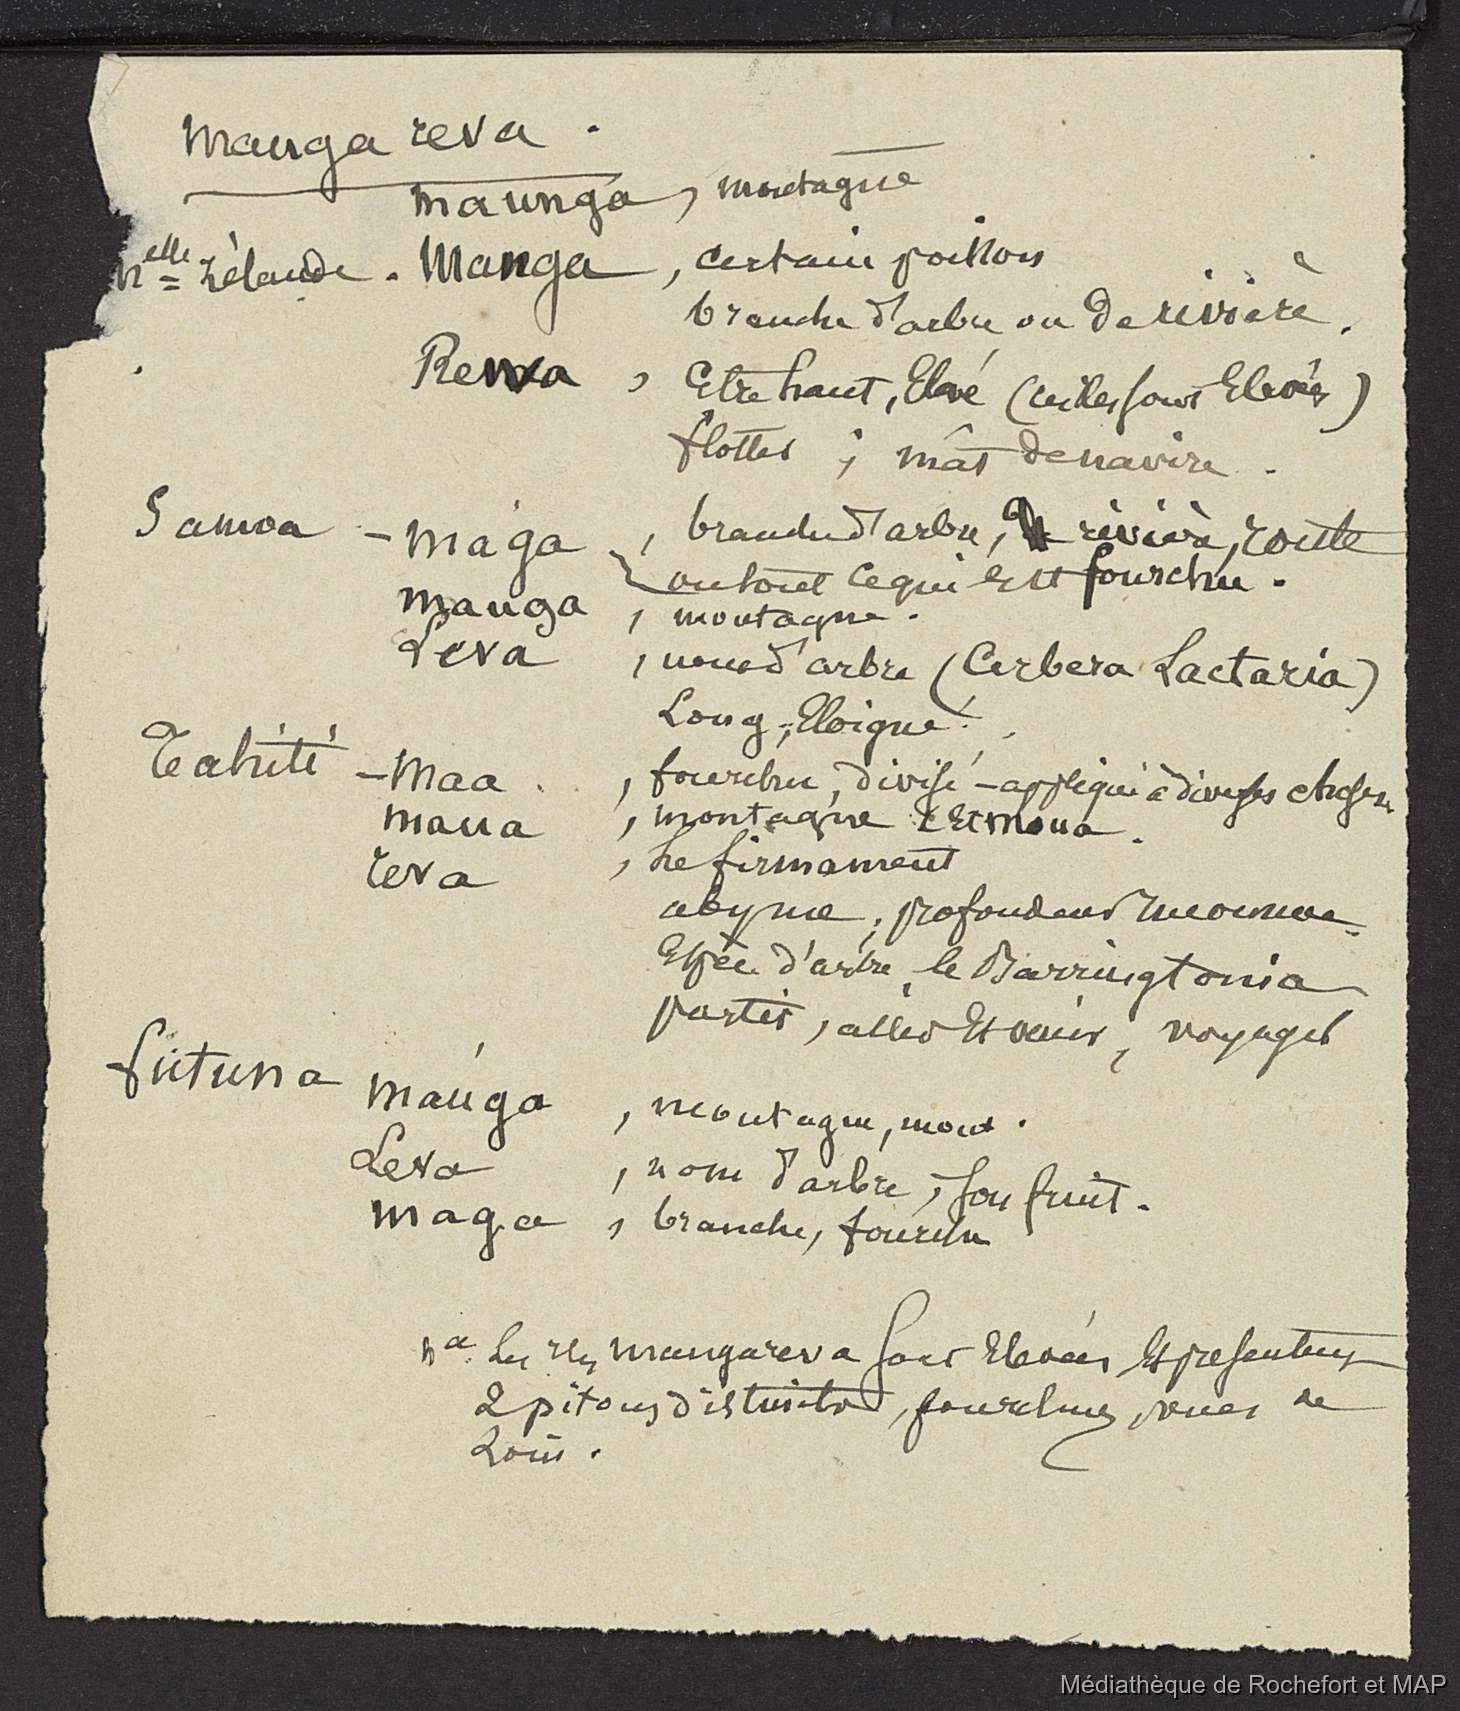 Mangareva.
maunga, montagne
Nelle Zélande. Manga, certain poisson
branche d'arbre ou de rivière.
Rewa, Etre haut, Elevé (
flotter ; mât de navire.
Samoa - māga, branche d'arbre, rivière, route
ou tout ce qui est fourchu.
mauga, montagne.
Leva, nom d'arbre (Cerbera Lactaria)
Long, Eloigné.
Tahiti - Maa, fourchu, divisé - appliqué à diverses choses
maua, montagne Et moua.
reva, Le firmament
abyme, profondeur inconnue
Espèce d'arbre, le Barringtonia
partir, aller Et venir, voyager
futuna mauga, montagne, mont.
Leva, nom d'arbre, son fruit.
maga, branche, fourchu
na. Les Iles mangareva sont Elevées Et présentent
2 pitons distincts, fourchus, vues de
Loin.
Médiathèque de Rochefort et MAP